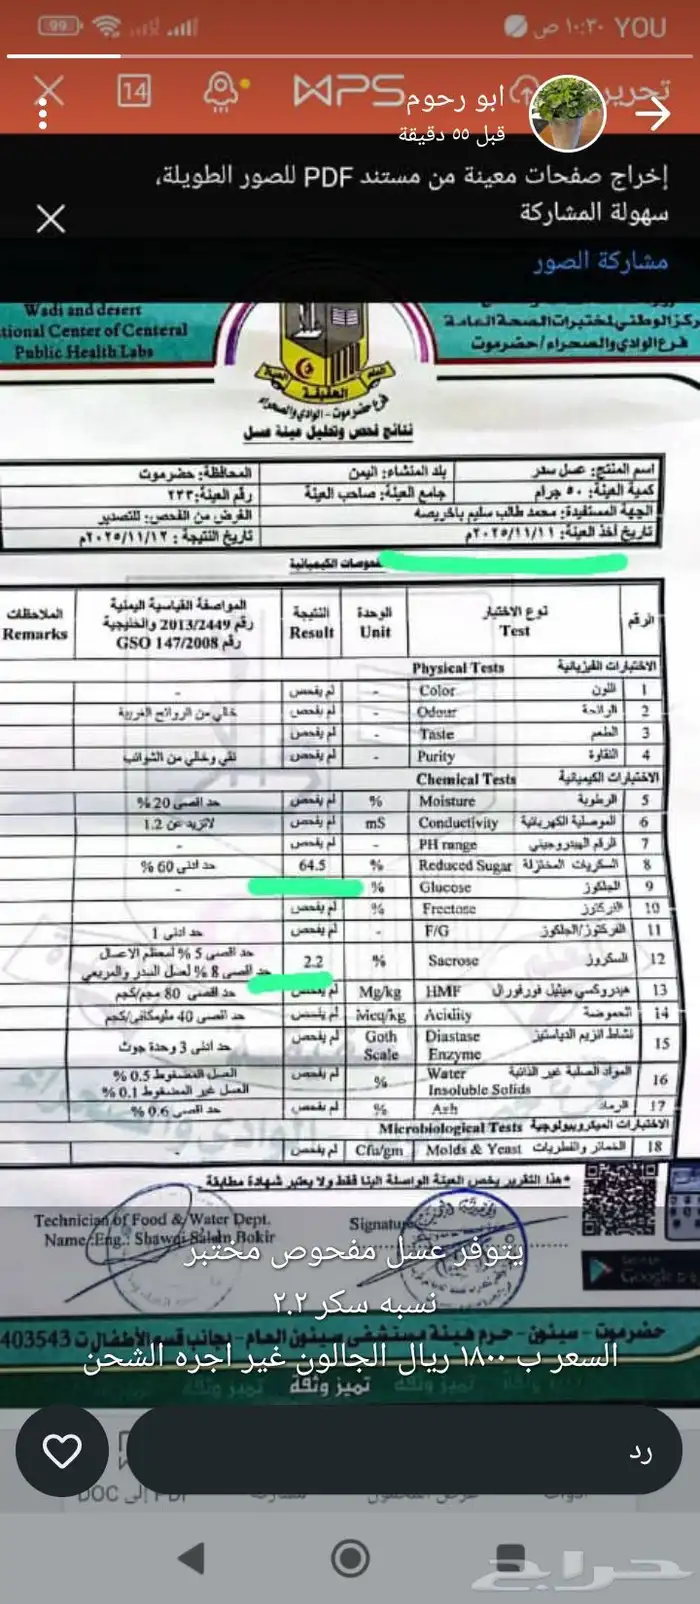 99
١٠:٣٠ ص YOU
تحرير
WPS
14
ابو رحوم
قبل ٥٥ دقيقة
إخراج صفحات معينة من مستند PDF للصور الطويلة،
سهولة المشاركة
مشاركة الصور
Wadi and desert
tional Center of Centeral
Public Health Labs
ركز الوطني لمختبرات الصحة العامة
فرع الوادي والصحراء / حضرموت
فرع حضرموت - الوادي والصحراء
نتائج فحص وتحليل عينة عسل
اسم المنتج: عسل سدر بلد المنشاء: اليمن المحافظة: حضرموت
كمية العينة: ٥٠ جرام جامع العينة: صاحب العينة رقم العينة: ٢٣٣
الجهة المستفيدة: محمد طالب سليم باخريصه الغرض من الفحص: للتصدير
تاريخ أخذ العينة: ٢٠٢٥/١١/١١م تاريخ النتيجة: ٢٠٢٥/١١/١٢م
الفحوصات الكيميائية
الرقم نوع الاختبار Test الوحدة Unit النتيجة Result المواصفة القياسية اليمنية رقم 2013/2449 والخليجية رقم GSO 147/2008 الملاحظات Remarks
الاختبارات الفيزيائية Physical Tests
1 اللون Color - لم يفحص -
2 الرائحة Odour - لم يفحص خالي من الروائح الغريبة
3 الطعم Taste - لم يفحص -
4 النقاوة Purity - لم يفحص نقي وخالي من الشوائب
الاختبارات الكيميائية Chemical Tests
5 الرطوبة Moisture % لم يفحص حد اقصى 20 %
6 الموصلية الكهربائية Conductivity mS لم يفحص لاتزيد عن 1.2
7 الرقم الهيدروجيني PH range - لم يفحص -
8 السكريات المختزلة Reduced Sugar % 64.5 حد ادنى 60 %
9 الجلكوز Glucose % -
10 الفركتوز Frectose % لم يفحص
11 الفركتوز/الجلكوز F/G - لم يفحص حد ادنى 1
12 السكروز Sacrose % 2.2 حد اقصى 5 % لمعظم الاعسال
حد اقصى 8 % لعسل السدر والمربعي
13 هيدروكسي ميثيل فورفورال HMF Mg/kg لم يفحص حد اقصى 80 مجم/كجم
14 الحموضة Acidity Meq/kg لم يفحص حد اقصى 40 مليمكافى/كجم
15 نشاط انزيم الدياستيز Diastase Enzyme Goth Scale لم يفحص حد ادنى 3 وحدة جوث
16 المواد الصلبة غير الذائبة Water Insoluble Solids % لم يفحص العسل المضغوط 0.5 %
العسل غير المضغوط 0.1 %
17 الرماد Ash % لم يفحص حد اقصى 0.6 %
الاختبارات الميكروبيولوجية Microbiological Tests
18 الخمائر والفطريات Molds & Yeast Cfu/gm لم يفحص -
*هذا التقرير يخص العينة الواصلة الينا فقط ولا يعتبر شهادة مطابقة*
Technician of Food & Water Dept.
Name: Eng.: Shawqi Salah Bokir
Signature
Google
يتوفر عسل مفحوص مختبر
نسبه سكر ٢.٢
السعر ب ١٨٠٠ ريال الجالون غير اجره الشحن
حضرموت - سيئون - حرم هيئة مستشفى سيئون العام - بجانب قسم الأطفال ت 403543
تميز وثقة
رد
PDF إلى DOC
أدوات
حراج